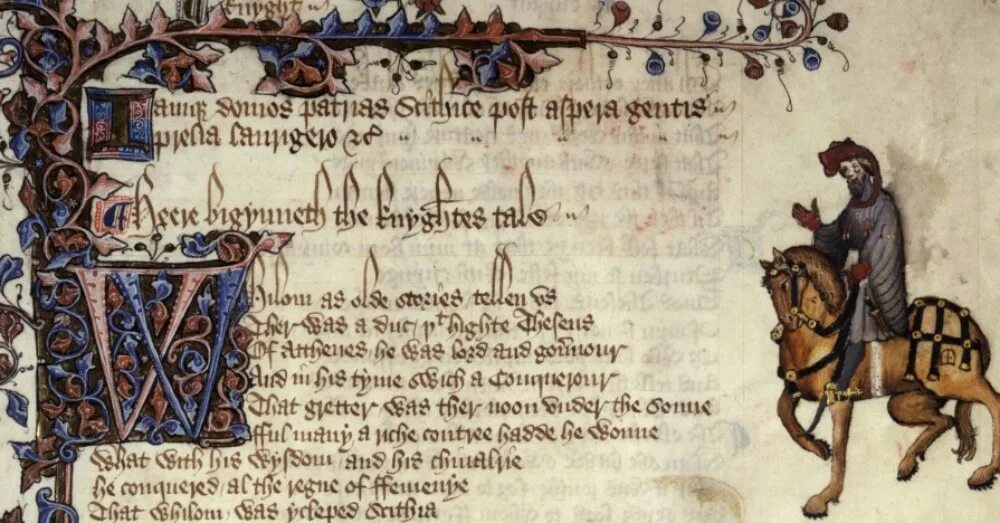 knyght
Iamqꝫ domos patrias Scithice post aspera gentis
prelia laurigero &c
Heere bigynneth the knyghtes tale
Whilom as olde stories tellen vs
Ther was a duc þᵗ highte Theseus
Of Atthenes he was lord and gou̾nour
And in his tyme swich a Conquerour
That gretter was ther noon vnder the sonne
fful many a riche contree hadde he wonne
What with his wysdom and his chiualrie
he conquered al the regne of ffemenye
That whilom was ycleped Scithia